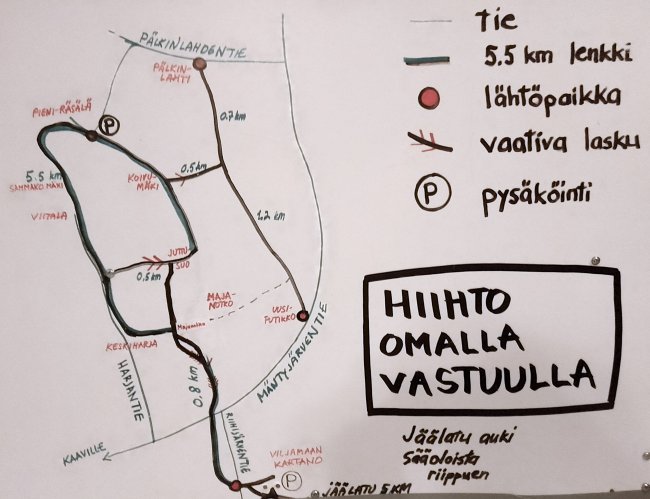 tie
5.5 km lenkki
lähtöpaikka
vaativa lasku
P pysäköinti
PÄLKINLAHDENTIE
PÄLKIN-
LAHTI
PIENI-RÄSÄLÄ
P
0.7 km
5.5 km
SAMMAKOMÄKI
KOIVU-
MÄKI
0.5 km
VIITALA
1.2 km
JUTTU-
SUO
0.5 km
MAJA-
NOTKO
UUSI-
PUTIKKO
KESKIHARJA
HARJANTIE
0.8 km
MÄNTYJÄRVENTIE
RIIHIJÄRVENTIE
KAAVILLE
VILJAMAAN
KARTANO
P
JÄÄLATU 5 KM
HIIHTO
OMALLA
VASTUULLA
Jäälatu auki
Sääoloista
riippuen